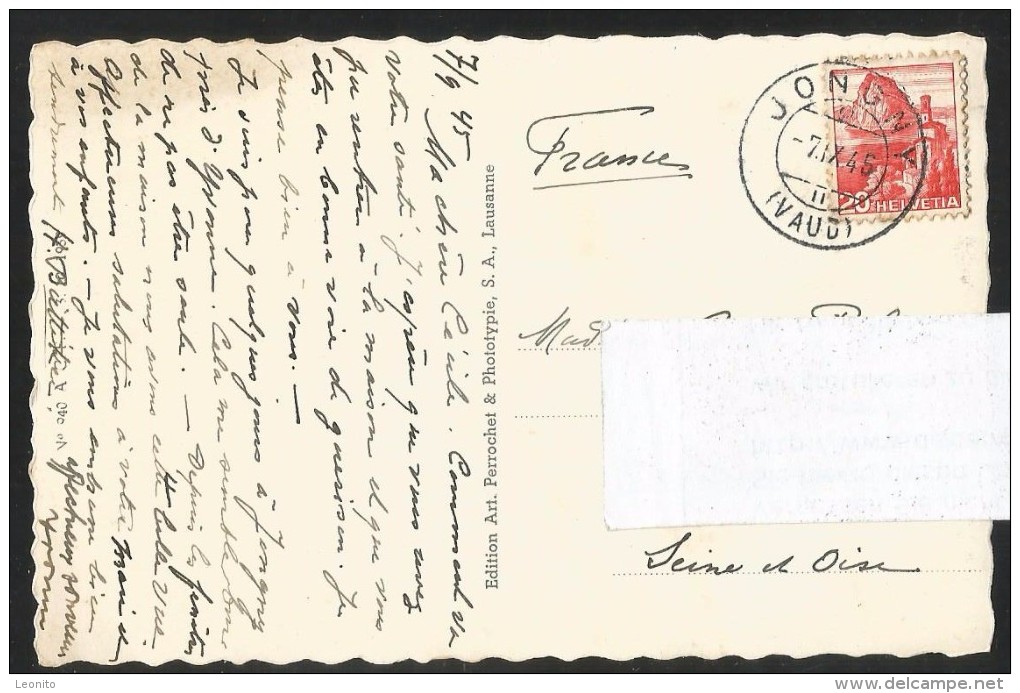 7/9 45 Ma chère Cécile. Comment va
votre santé? J'espère que vous avez
pu rentrer à la maison et que vous
êtes en bonne voie de guérison. Je
pense bien à vous. —
Je suis pour quelques jours à Jongny
près d'Yvonne. Cela me semble bon
de ne pas être seule. — Depuis les fenêtres
de la maison nous avons cette belle vue
Affectueuses salutations à votre mari et
à vos enfants. — Je vous embrasse bien
tendrement
affectueux
Yvonne
Edition Art. Perrochet & Phototypie, S. A., Lausanne
No 940 A
France
JONGNY
-7.IX.45
(VAUD)
20 HELVETIA
Seine et Oise
Leonito
delcampe.net